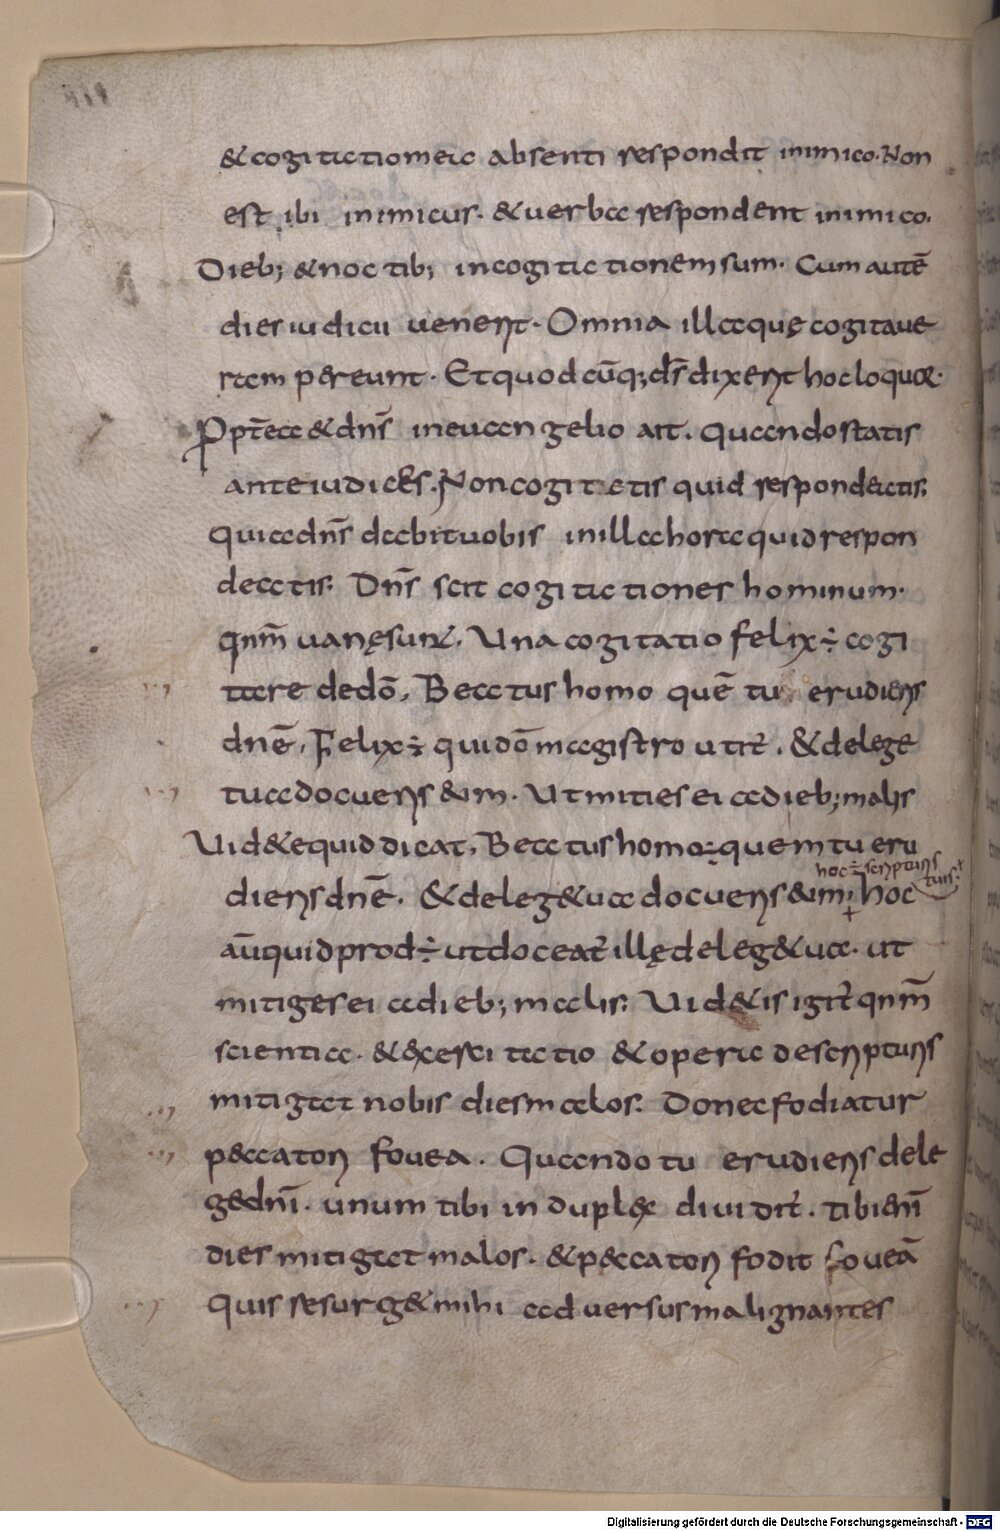 & cogitatio mea absenti respondit inimico. Non
est ibi inimicus. & uerba respondent inimico.
Dieb; & noctib; in cogitationem sum. Cum autē
dies iudicii uenerit. Omnia illa quę cogitaue
ram pereunt. Et quodcūq; d̄s dixerit hoc loquar.
Pptēea & dn̄s in euangelio ait. Quando statis
ante iudices. Non cogitetis quid respondeatis.
Quia dn̄s dabit uobis in illa hora quid respon
deatis. Dn̄s scit cogitationes hominum.
qnm̄ uanę sunt. Una cogitatio felix ÷ cogi
tare de dō. Beatus homo quē tu erudieris
dn̄ē. Felix ÷ qui dō magistro utit̄. & de lege
tua docueris eum. Ut mities ei a dieb; malis
Uidete quid dicat. Beatus homo quem tu eru
hoc ÷ scripturis tuis.
dieris dn̄ē. & de lege tua docueris eum; hoc
aū quid prod÷ ut doceat̄ illę de lege tua. ut
mitiges ei a dieb; malis. Uidetis igit̄ qnm̄
scientia. & exercitatio & opera de scripturis
mitigat nobis dies malos. Donec fodiatur
peccatori fouea. Quando tu erudieris de le
ge dn̄i. unum tibi in duplex diuidit̄. tibi eni̅
dies mitigat malos. & peccatori fodit foueā
Quis resurget mihi aduersus malignantes
Digitalisierung gefördert durch die Deutsche Forschungsgemeinschaft - DFG